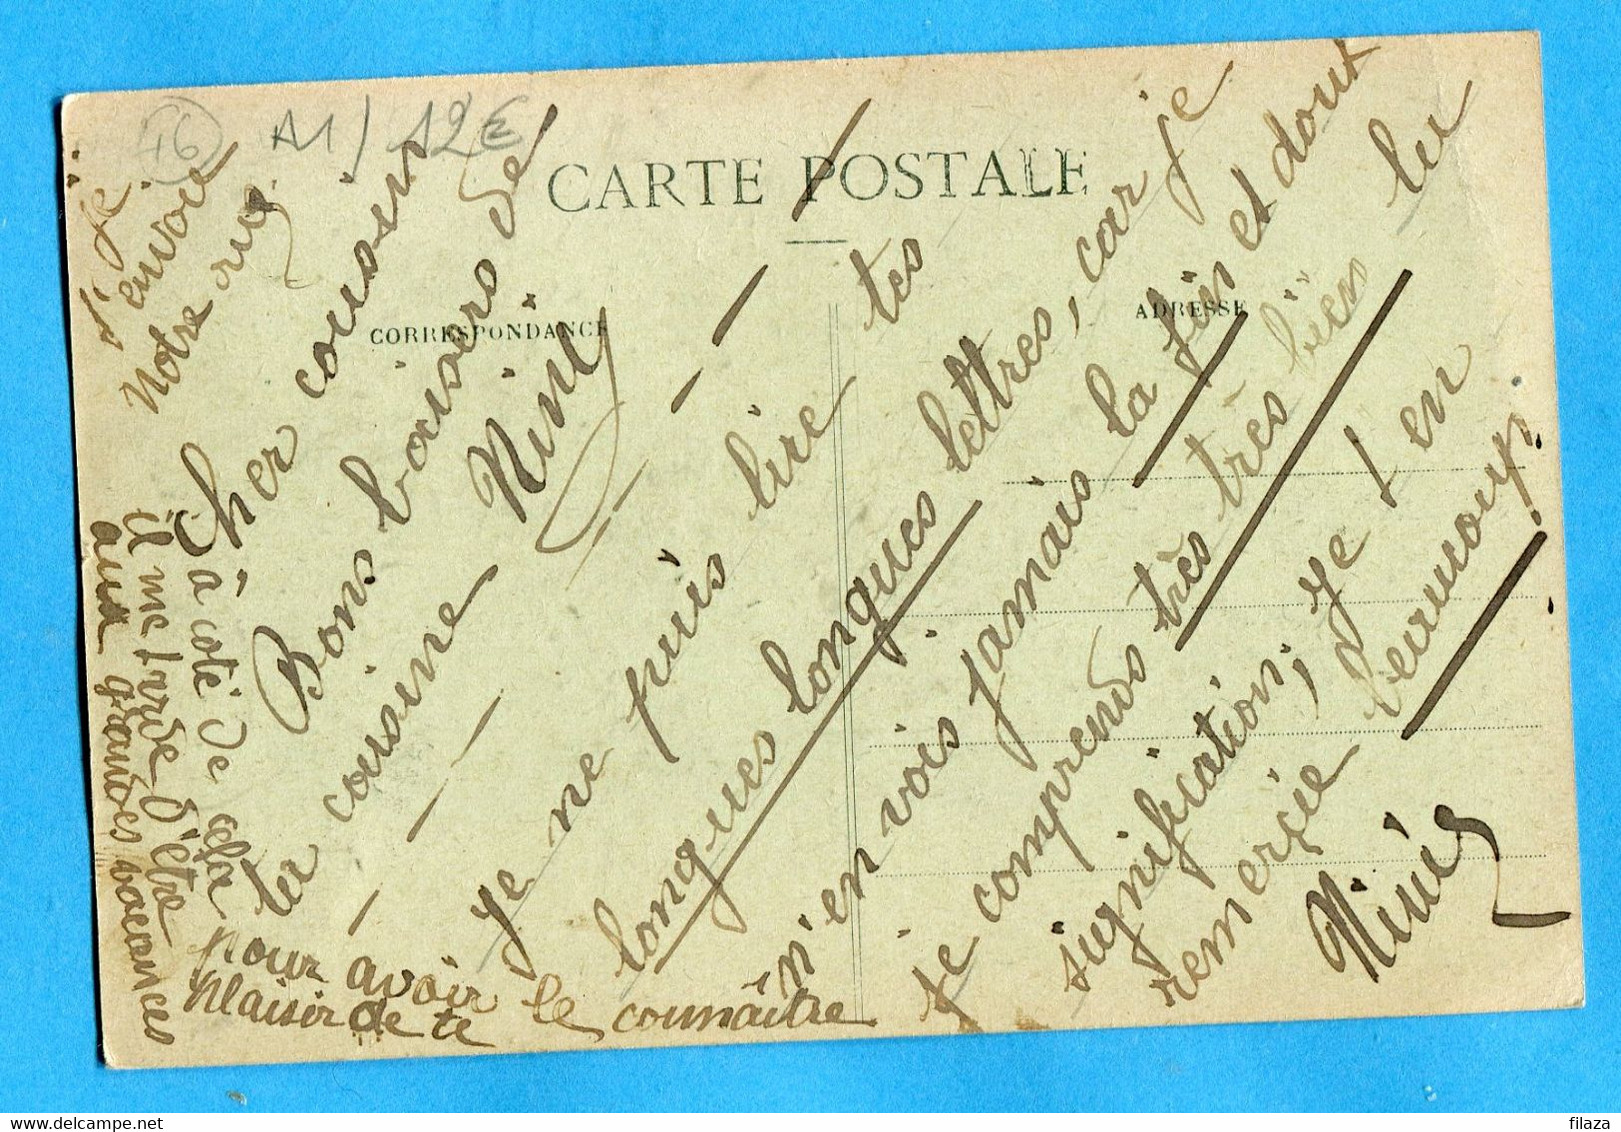 16 A1/ 12€
CARTE POSTALE
CORRESPONDANCE
ADRESSE
Cher cousin
Bons baisers de
ta cousine Niny
Je ne puis lire tes
longues longues lettres, car je
n'en vois jamais la fin et dout
je comprends très très bien la
signification; je t'en
remerçie beaucoup.
Niniz
Je
t'envoie
notre
à côté de cela
il me tarde d'être
aux grandes vacances
pour avoir le
plaisir de te connaître
filaza
delcampe.net